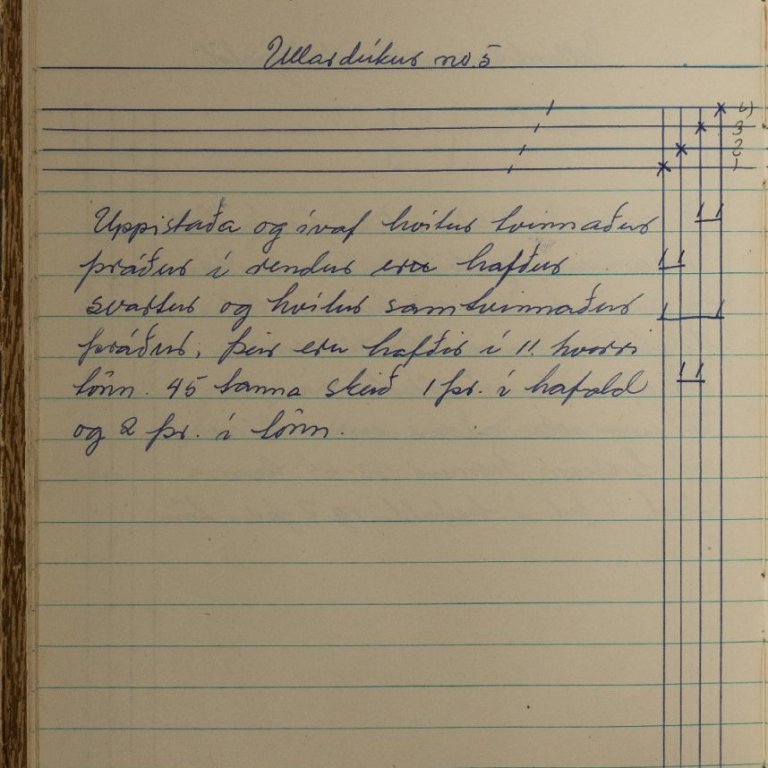 Ullardúkur no. 5
4)
3
2
1
Uppistaða og ívaf hvítur tvinnaður
þráður í rendur eru hafður
svartur og hvítur samtvinnaður
þráður, þeir eru hafðir í 11. hverri
tönn. 45 tanna skeið 1 þr. í hafald
og 2 þr. í tönn.